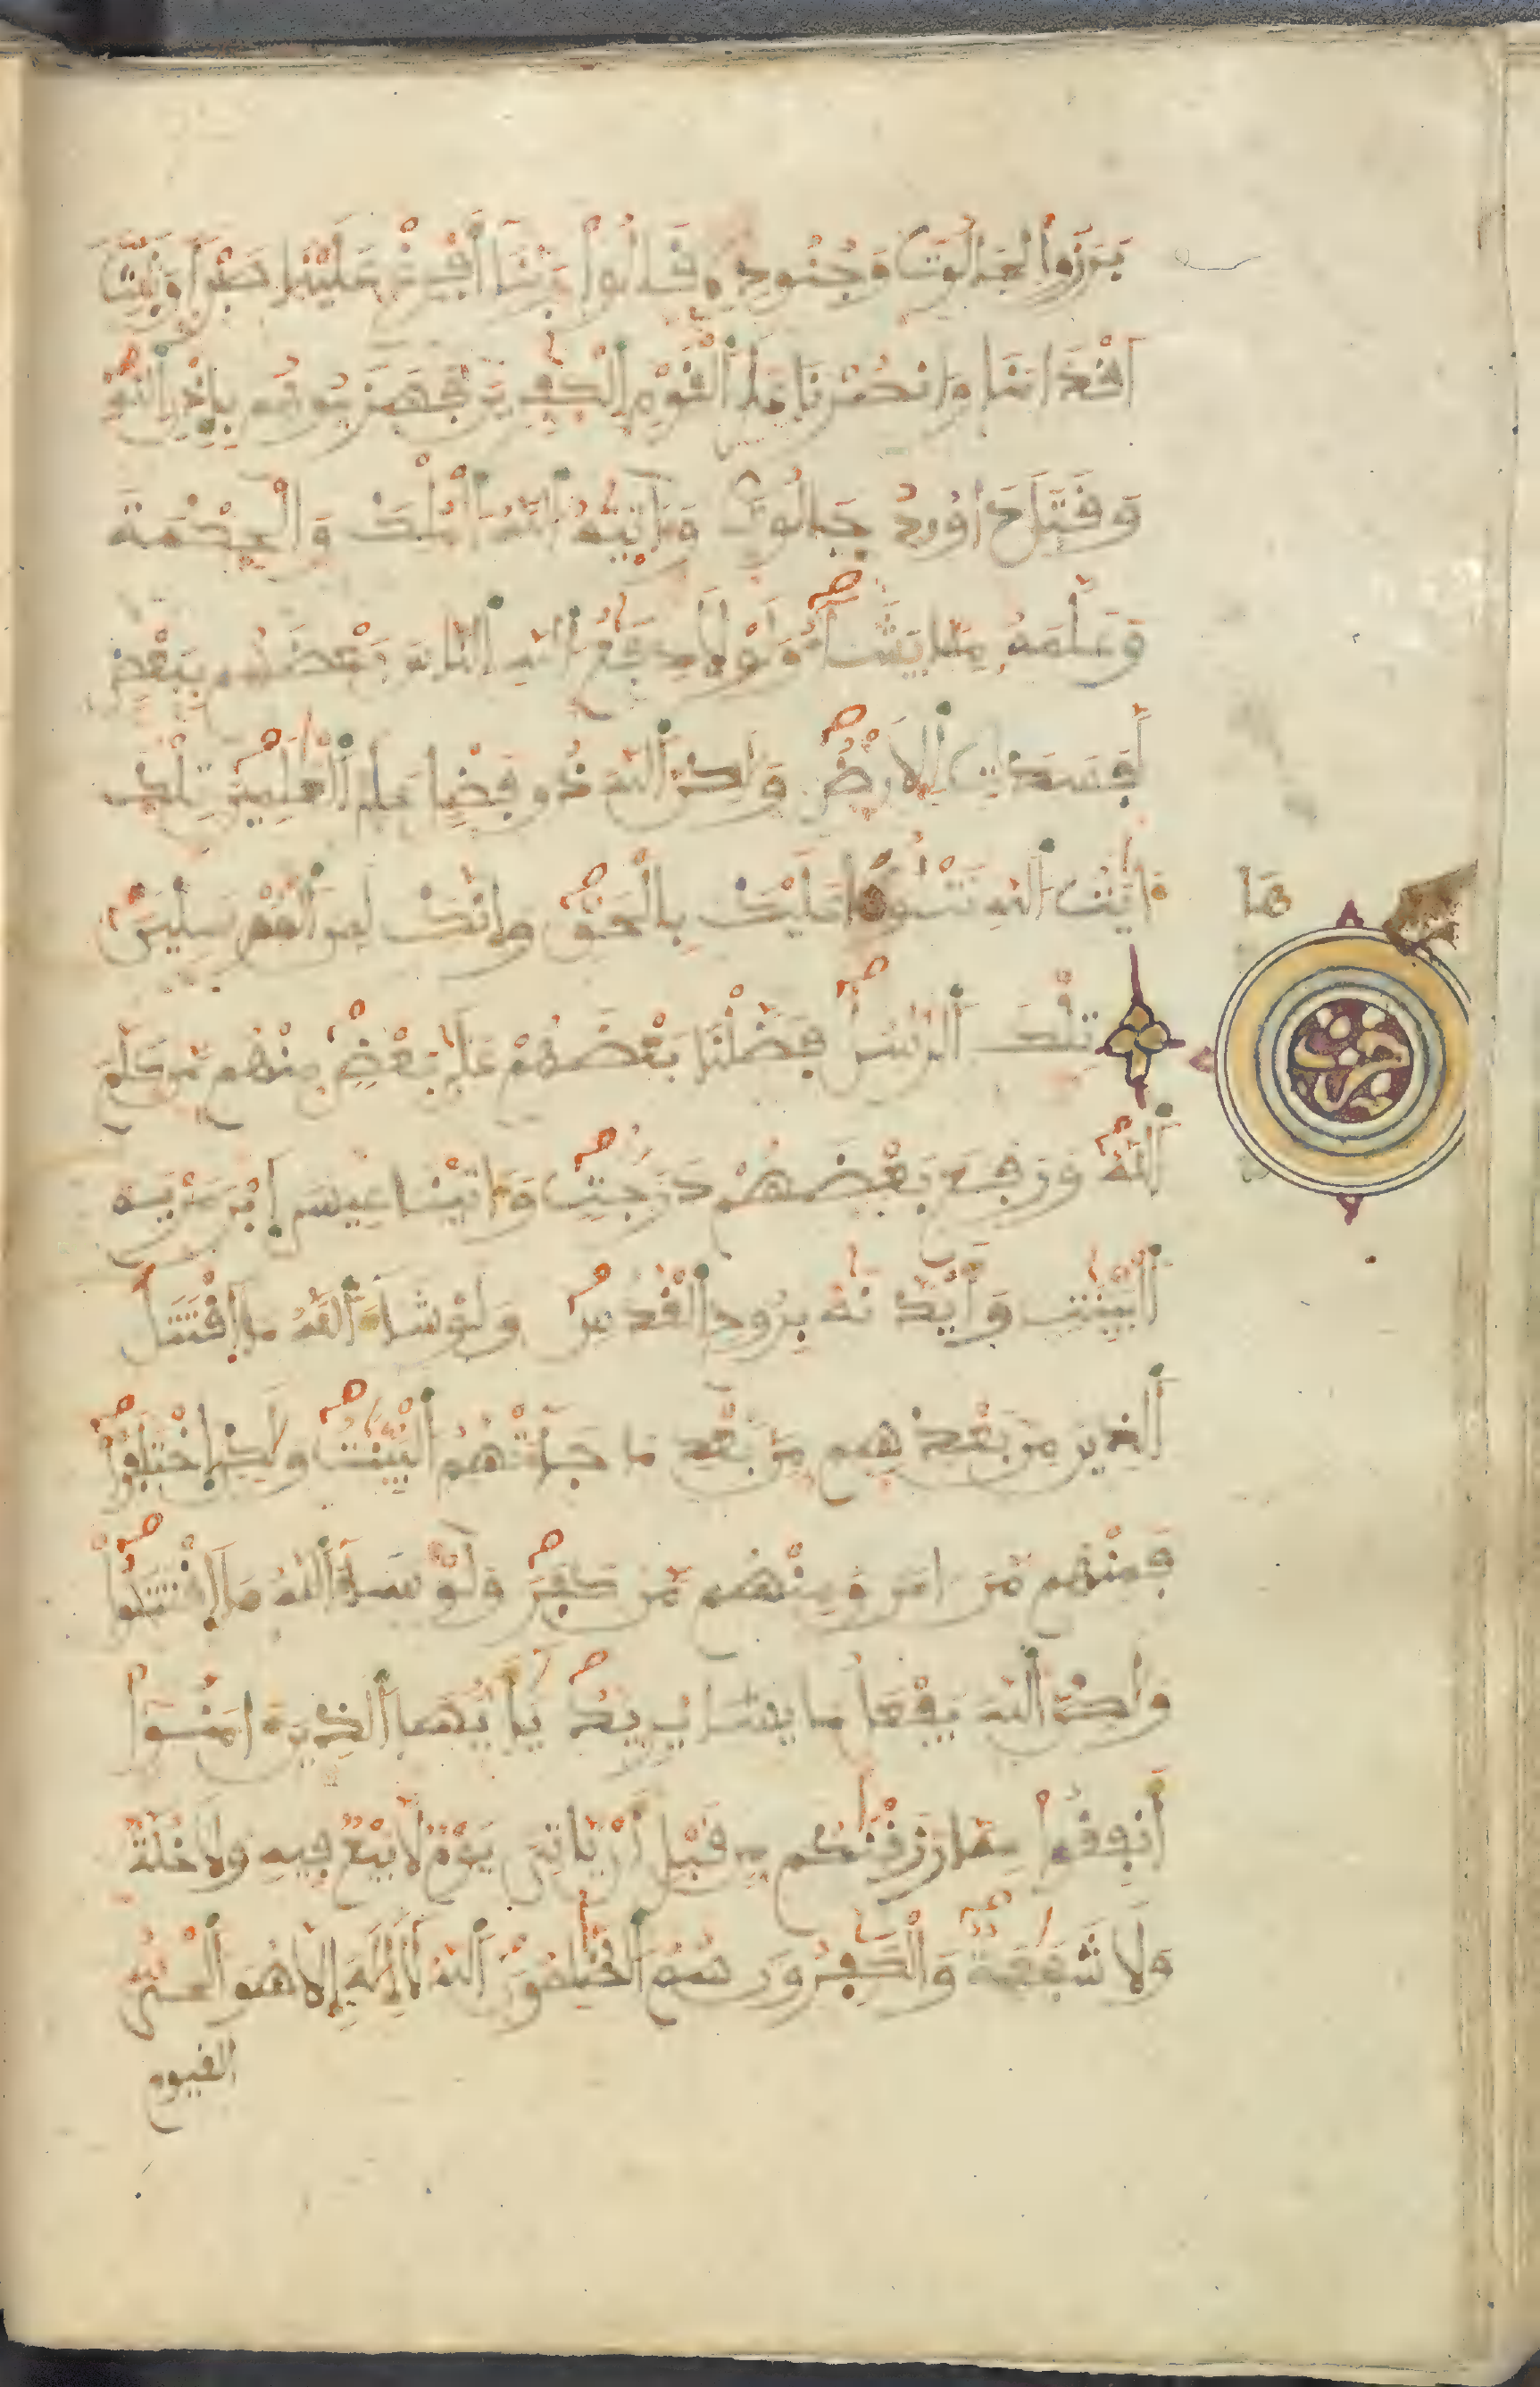 برزوا لجالوت وجنوده قالوا ربنا أفرغ علينا صبرا وثبت
اقدامنا وانصرنا على القوم الكفرين فهزموهم بإذن الله
وقتل داوود جالوت وءاتيه الله الملك والحكمة
وعلمه مما يشاء ولولا دفع الله الناس بعضهم ببعض
لفسدت الارض ولكن الله ذو فضل على العلمين تلك
ءايت الله نتلوها عليك بالحق وإنك لمن المرسلين
ها
تلك الرسل فضلنا بعضهم على بعض منهم من كلم
الله ورفع بعضهم درجت وءاتينا عيسى ابن مريم
البينت وأيدنه بروح القدس ولو شاء الله ما اقتتل
الذين من بعدهم من بعد ما جاءتهم البينت ولكن اختلفوا
فمنهم من ءامن ومنهم من كفر ولو شاء الله ما اقتتلوا
ولكن الله يفعل ما يشا يريد يأيها الذين ءامنوا
أنفقوا مما رزقنكم من قبل أن ياتي يوم لا بيع فيه ولا خلة
ولا شفعة والكفرون هم الظلمون الله لا إله إلا هو الحي
القيوم